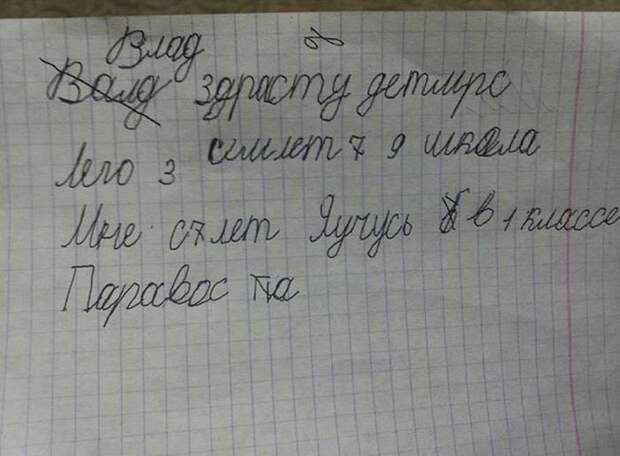 Влад
Валд здрасту детмрс
Лего з семлет 7 9 школа
Мне с7лет Яучусь в 1 классе
Паравос па